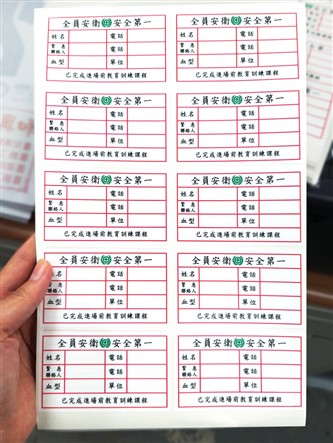 全員安衛 安全第一
姓名 電話
緊急
聯絡人 電話
血型 單位
已完成進場前教育訓練課程
全員安衛 安全第一
姓名 電話
緊急
聯絡人 電話
血型 單位
已完成進場前教育訓練課程
全員安衛 安全第一
姓名 電話
緊急
聯絡人 電話
血型 單位
已完成進場前教育訓練課程
全員安衛 安全第一
姓名 電話
緊急
聯絡人 電話
血型 單位
已完成進場前教育訓練課程
全員安衛 安全第一
姓名 電話
緊急
聯絡人 電話
血型 單位
已完成進場前教育訓練課程
全員安衛 安全第一
姓名 電話
緊急
聯絡人 電話
血型 單位
已完成進場前教育訓練課程
全員安衛 安全第一
姓名 電話
緊急
聯絡人 電話
血型 單位
已完成進場前教育訓練課程
全員安衛 安全第一
姓名 電話
緊急
聯絡人 電話
血型 單位
已完成進場前教育訓練課程
全員安衛 安全第一
姓名 電話
緊急
聯絡人 電話
血型 單位
已完成進場前教育訓練課程
全員安衛 安全第一
姓名 電話
緊急
聯絡人 電話
血型 單位
已完成進場前教育訓練課程